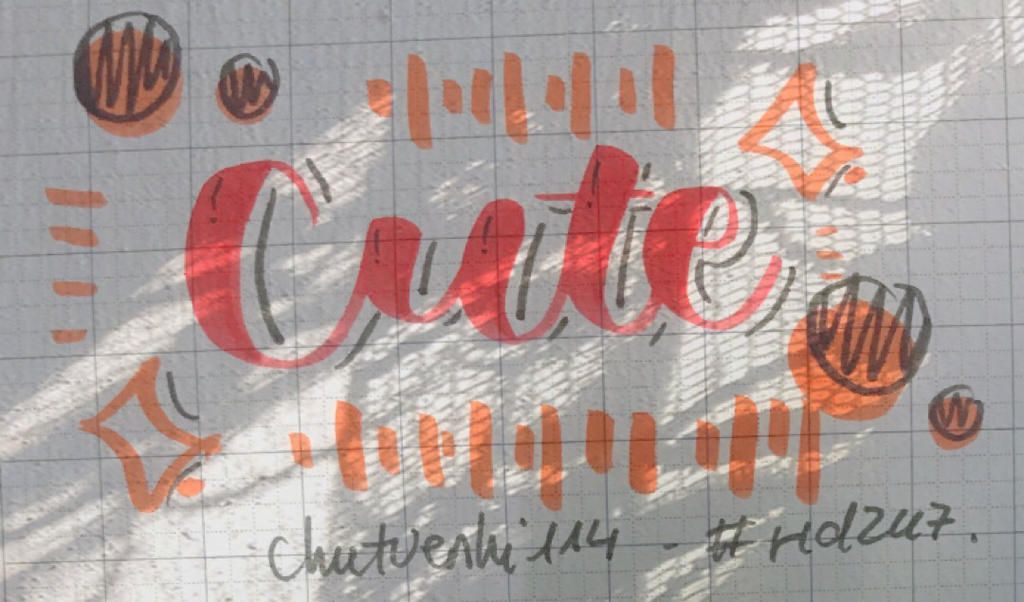 Cute
chutveshi114 - #rd247.